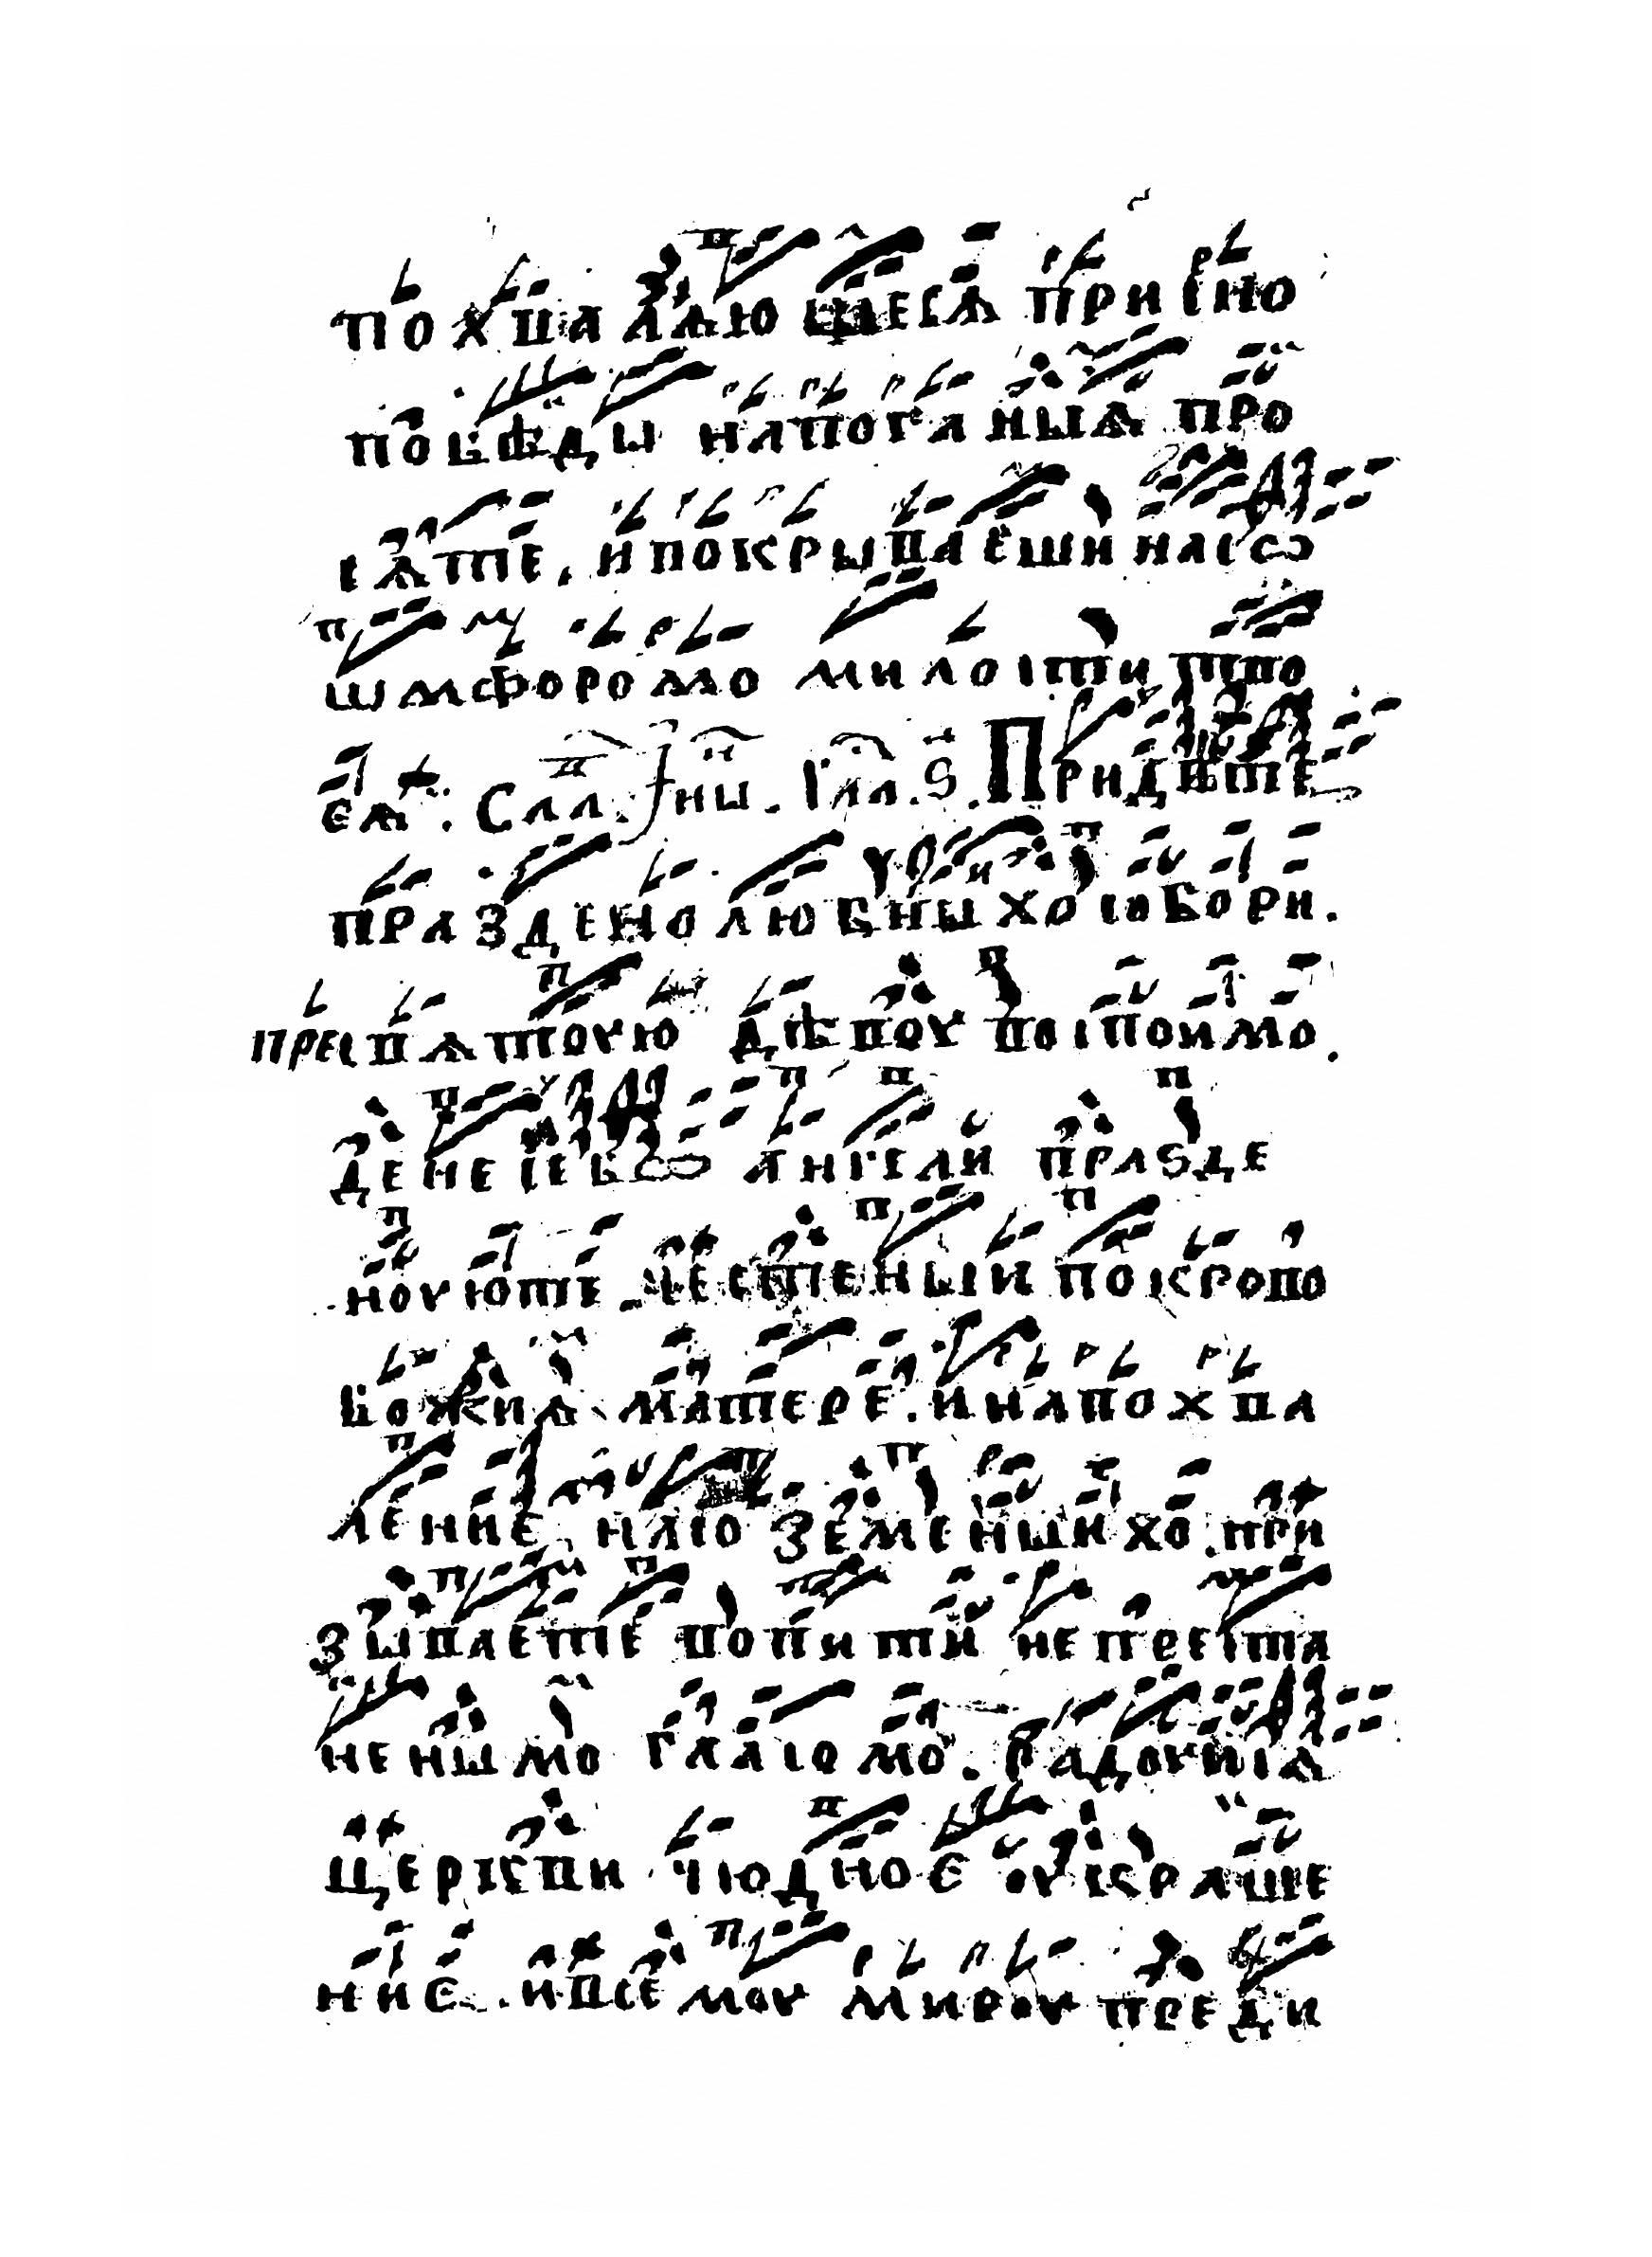 похвалѧющесѧ присно
побѣды на поганыѧ про
сѧте. и покрываеши насо
ѡмофоромо милоститво
еѧ. Сла. Ины. Гла. ѕ. Придѣте
празденолюбныхо собори.
пресвѧтоую дѣвоу воспоимо.
денесебо ангели праѕде
ноуюте честеныи покрово
божиѧ матере. и на похва
ление насо земеныихо. при
зываете вопити непреста
ненымо гласомо. радоуисѧ
церкви чюдное оукраше
ние. и всемоу мироу преди